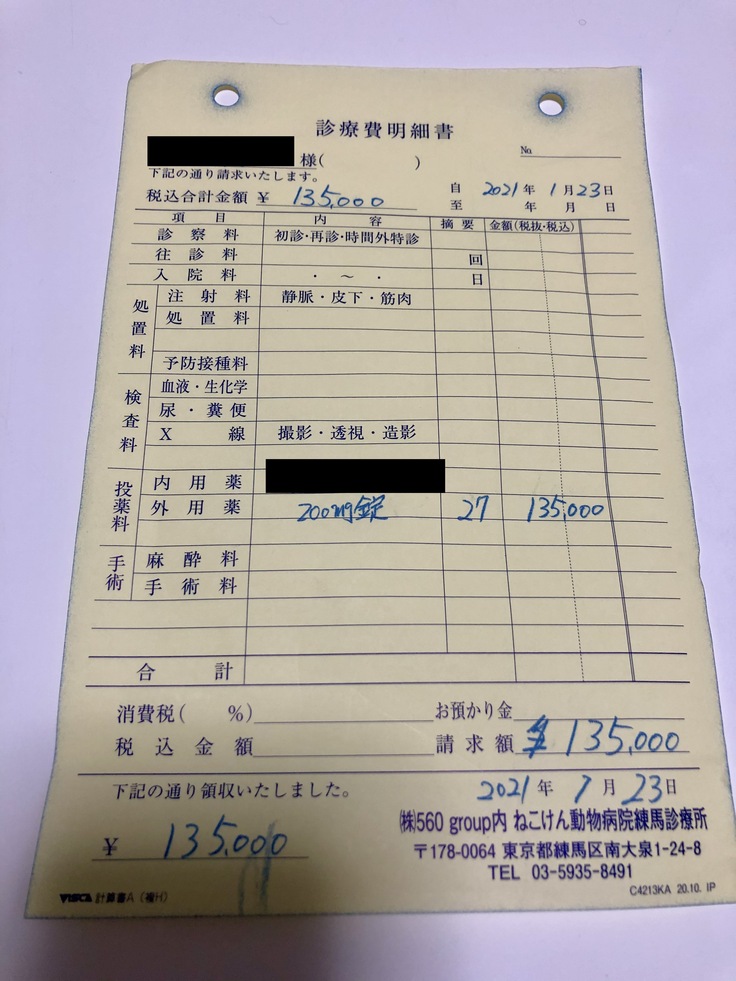 診療費明細書
様( )
№
下記の通り請求いたします。
税込合計金額 ¥ 135,000
自 2021年 1月23日
至 年 月 日
項目 内容 摘要 金額(税抜・税込)
診察料 初診・再診・時間外特診
往診料 回
入院料 ・ ~ ・ 日
処置料
注射料 静脈・皮下・筋肉
処置料
予防接種料
検査料
血液・生化学
尿・糞便
X線 撮影・透視・造影
投薬料
内用薬
外用薬 200mg錠 27 135,000
手術
麻酔料
手術料
合計
消費税( %) お預かり金
税込金額 請求額 ¥135,000
下記の通り領収いたしました。 2021年 1月23日
¥ 135,000
㈱560 group内 ねこけん動物病院練馬診療所
〒178-0064 東京都練馬区南大泉1-24-8
TEL 03-5935-8491
VISCA 計算書A(複H) C4213KA 20.10. IP